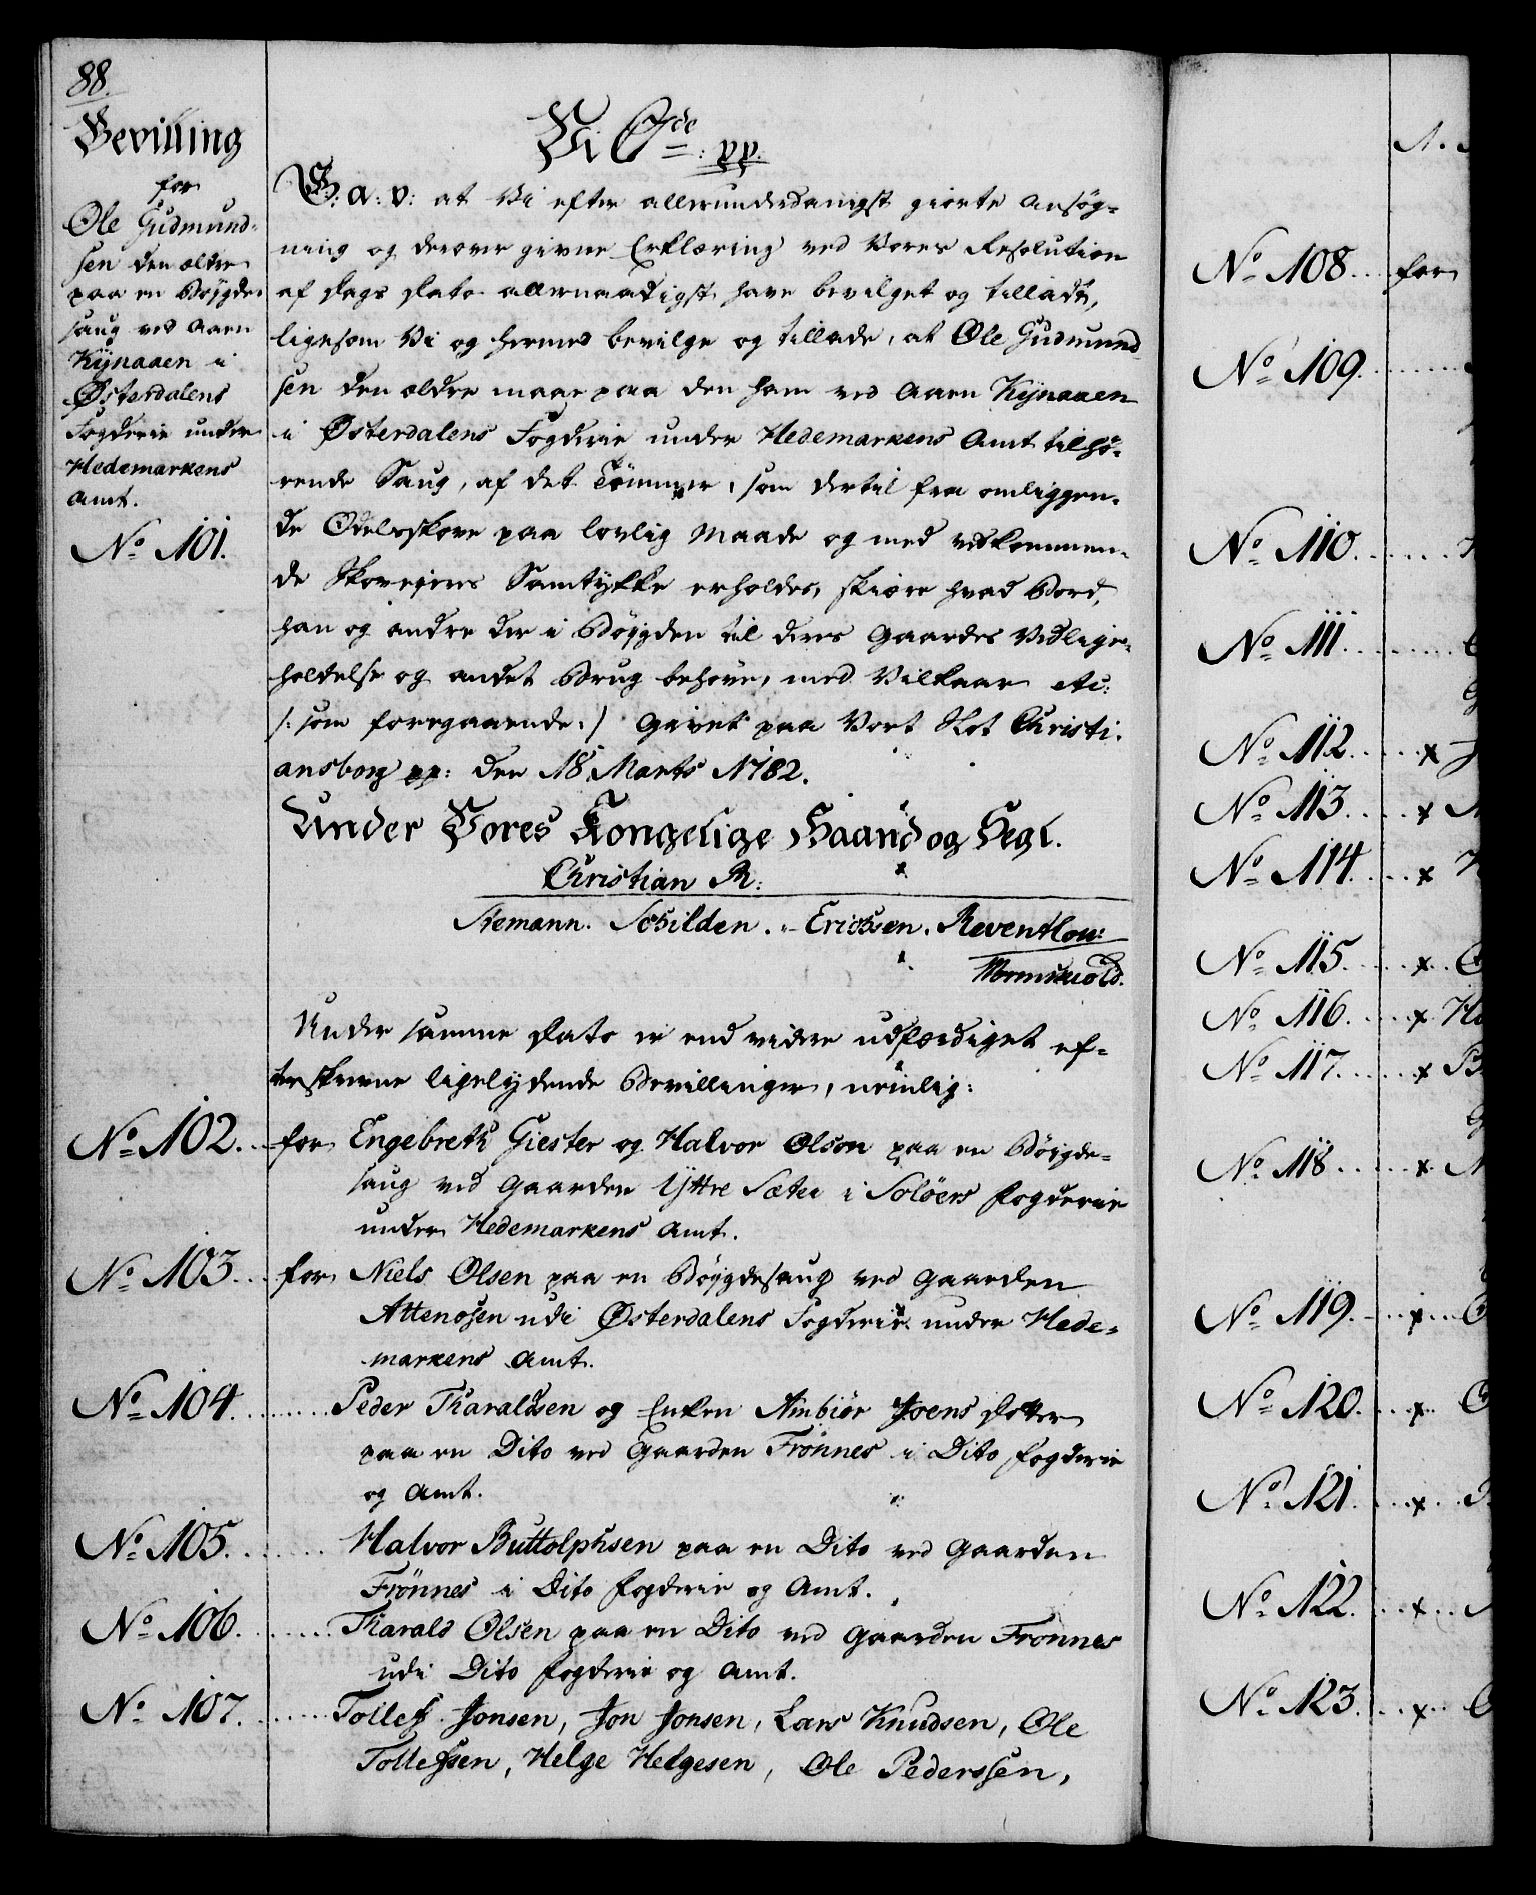 88.
Bevilling
for
Ole Gudmund-
sen den ældre
paa en Bøygde-
saug ved Aaen
Kynaaen i
Østerdalens
Fogderie under
Hedemarkens
Amt.
No 101.
Vi C 7de pp.
G: a: v: at Vi efter allerunderdanigst giorte Ansøg-
ning og derover givne Erklæring ved Vores Resolution
af Dags Dato allernaadigst have bevilget og tilladt,
ligesom Vi og hermed bevilge og tillade, at Ole Gudmund
sen den ældre maae paa den ham ved Aaen Kynaaen
i Østerdalens Fogderie under Hedemarkens Amt tilhø-
rende Saug, af det Tømmer, som dertil fra omliggen-
de Odelsskove paa lovlig Maade og med vedkommen-
de Skovejers Samtykke erholdes, skiære hvad Bord,
han og andre der i Bøygden til deres Gaardes Vedlige-
holdelse og andet Brug behøve, med Vilkaar etc:
/: som foregaaende :/ Givet paa Vort Slot Christi-
ansborg pp: den 18 Marts 1782.
Under Vores Kongelige Haand og Segl.
Christian R:
Stemann. Schilden. Erichsen. Reventlou:
Wormskiold.
Under samme Dato er end videre udfærdiget ef-
terskrevne ligelydende Bevillinger, nemlig:
No 102. for Engebreth Giester og Halvor Olson paa en Bøigde-
saug ved Gaarden Yttre Sæter i Soløers Fogderie
under Hedemarkens Amt.
No 103. for Niels Olsen paa en Bøygdesaug ved Gaarden
Attenosen udi Østerdalens Fogderie under Hede-
markens Amt.
No 104. Peder Tharaldsen og Enken Ambiør Joens Dotter
paa en Dito ved Gaarden Frønnes i Dito Fogderie
og Amt.
No 105. Halvor Buttolphsen paa en Dito ved Gaarden
Frønnes i Dito Fogderie og Amt.
No 106. Tharald Olsen paa en Dito ved Gaarden Frønnes
udi Dito Fogderie og Amt.
No 107. Tollef Jonsen, Jon Jonsen, Lars Knudsen, Ole
Tollefssen, Helge Helgesen, Ole Pederssen,
No 108. for
No 109.
No 110.
No 111.
No 112. x
No 113. x
No 114. x
No 115. x
No 116. x
No 117. x
No 118. x
No 119. x
No 120. x
No 121. x
No 122. x
No 123. x